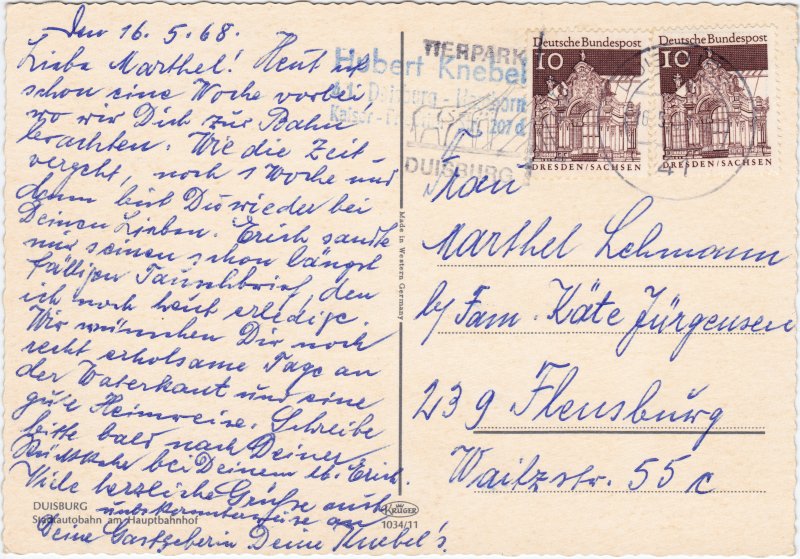 Den 16.5.68.
Liebe Marthel! Heut ist
schon eine Woche vorbei,
wo wir Dich zur Bahn
brachten. Wie die Zeit
vergeht, noch 1 Woche und
dann bist Du wieder bei
Deinen Lieben. Erich sandte
mir seinen schon längst
fälligen Tauschbrief, den
ich noch heut erledige.
Wir wünschen Dir noch
recht erholsame Tage an
der Waterkant und eine
gute Heimreise. Schreibe
bitte bald nach Deiner
Rückkehr bei Deinem lb. Erich.
Viele herzliche Grüße auch
unbekannterweise an
Deine Gastgeberin Deine Knebel's.
DUISBURG
Stadtautobahn am Hauptbahnhof
KRÜGER
1034/11
Made in Western Germany
TIERPARK
DUISBURG
Hubert Knebel
41 Duisburg -
Kaiser- 207 d
Deutsche Bundespost
10
DRESDEN/SACHSEN
Deutsche Bundespost
10
DRESDEN/SACHSEN
41
Frau
Marthel Lehmann
b/ Fam. Käte Jürgensen
239 Flensburg
Waitzstr. 55 c